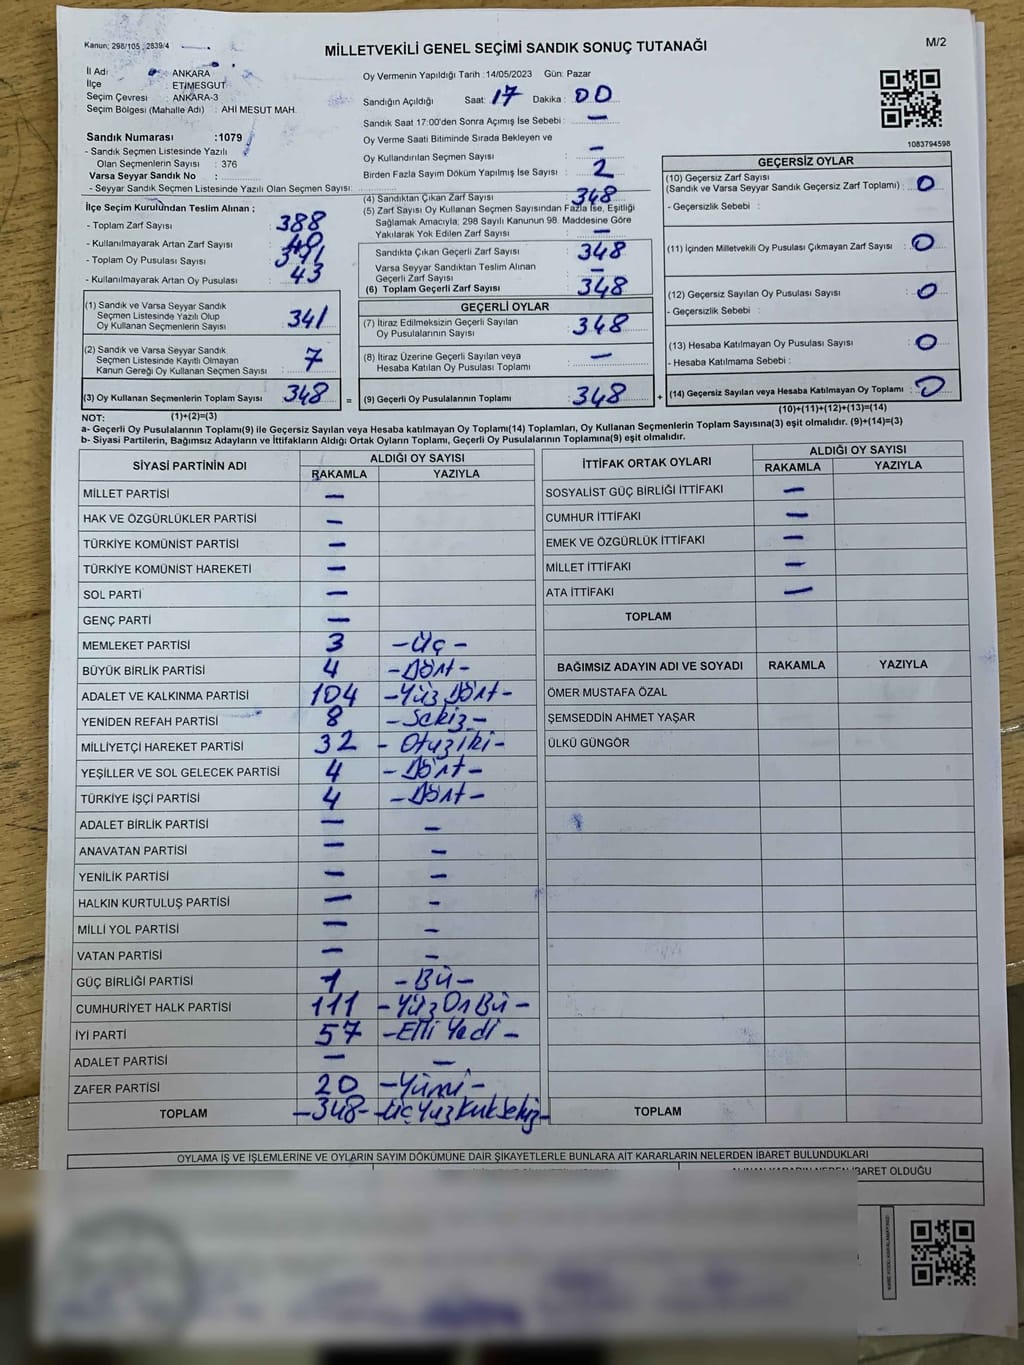 Kanun; 298/105 ; 2839/4
MİLLETVEKİLİ GENEL SEÇİMİ SANDIK SONUÇ TUTANAĞI
M/2
İl Adı : ANKARA
İlçe : ETİMESGUT
Seçim Çevresi : ANKARA-3
Seçim Bölgesi (Mahalle Adı) : AHİ MESUT MAH.
Sandık Numarası :1079
- Sandık Seçmen Listesinde Yazılı
Olan Seçmenlerin Sayısı : 376
Varsa Seyyar Sandık No :
- Seyyar Sandık Seçmen Listesinde Yazılı Olan Seçmen Sayısı:
Oy Vermenin Yapıldığı Tarih :14/05/2023 Gün: Pazar
Sandığın Açıldığı Saat: 17 Dakika : 00
Sandık Saat 17:00'den Sonra Açımış İse Sebebi : —
Oy Verme Saati Bitiminde Sırada Bekleyen ve
Oy Kullandırılan Seçmen Sayısı : —
Birden Fazla Sayım Döküm Yapılmış İse Sayısı : 2
1083794598
İlçe Seçim Kurulundan Teslim Alınan ;
- Toplam Zarf Sayısı : 388
- Kullanılmayarak Artan Zarf Sayısı : 40
- Toplam Oy Pusulası Sayısı : 391
- Kullanılmayarak Artan Oy Pusulası : 43
(1) Sandık ve Varsa Seyyar Sandık
Seçmen Listesinde Yazılı Olup
Oy Kullanan Seçmenlerin Sayısı : 341
(2) Sandık ve Varsa Seyyar Sandık
Seçmen Listesinde Kayıtlı Olmayan
Kanun Gereği Oy Kullanan Seçmen Sayısı : 7
(3) Oy Kullanan Seçmenlerin Toplam Sayısı : 348 =
(4) Sandıktan Çıkan Zarf Sayısı : 348
(5) Zarf Sayısı Oy Kullanan Seçmen Sayısından Fazla İse, Eşitliği
Sağlamak Amacıyla; 298 Sayılı Kanunun 98. Maddesine Göre
Yakılarak Yok Edilen Zarf Sayısı : —
Sandıkta Çıkan Geçerli Zarf Sayısı : 348
Varsa Seyyar Sandıktan Teslim Alınan
Geçerli Zarf Sayısı : —
(6) Toplam Geçerli Zarf Sayısı : 348
GEÇERLİ OYLAR
(7) İtiraz Edilmeksizin Geçerli Sayılan
Oy Pusulalarının Sayısı : 348
(8) İtiraz Üzerine Geçerli Sayılan veya
Hesaba Katılan Oy Pusulası Toplamı : —
(9) Geçerli Oy Pusulalarının Toplamı : 348 +
GEÇERSİZ OYLAR
(10) Geçersiz Zarf Sayısı
(Sandık ve Varsa Seyyar Sandık Geçersiz Zarf Toplamı) : 0
- Geçersizlik Sebebi :
(11) İçinden Milletvekili Oy Pusulası Çıkmayan Zarf Sayısı : 0
(12) Geçersiz Sayılan Oy Pusulası Sayısı : 0
- Geçersizlik Sebebi :
(13) Hesaba Katılmayan Oy Pusulası Sayısı : 0
- Hesaba Katılmama Sebebi :
(14) Geçersiz Sayılan veya Hesaba Katılmayan Oy Toplamı : 0
NOT: (1)+(2)=(3)
(10)+(11)+(12)+(13)=(14)
a- Geçerli Oy Pusulalarının Toplamı(9) ile Geçersiz Sayılan veya Hesaba Katılmayan Oy Toplamı(14) Toplamları, Oy Kullanan Seçmenlerin Toplam Sayısına(3) eşit olmalıdır. (9)+(14)=(3)
b- Siyasi Partilerin, Bağımsız Adayların ve İttifakların Aldığı Ortak Oyların Toplamı, Geçerli Oy Pusulalarının Toplamına(9) eşit olmalıdır.
SİYASİ PARTİNİN ADI ALDIĞI OY SAYISI
RAKAMLA YAZIYLA
MİLLET PARTİSİ —
HAK VE ÖZGÜRLÜKLER PARTİSİ —
TÜRKİYE KOMÜNİST PARTİSİ —
TÜRKİYE KOMÜNİST HAREKETİ —
SOL PARTİ —
GENÇ PARTİ —
MEMLEKET PARTİSİ 3 -Üç-
BÜYÜK BİRLİK PARTİSİ 4 -Dört-
ADALET VE KALKINMA PARTİSİ 104 -Yüz Dört-
YENİDEN REFAH PARTİSİ 8 -Sekiz-
MİLLİYETÇİ HAREKET PARTİSİ 32 - Otuz iki-
YEŞİLLER VE SOL GELECEK PARTİSİ 4 -Dört-
TÜRKİYE İŞÇİ PARTİSİ 4 -Dört-
ADALET BİRLİK PARTİSİ — —
ANAVATAN PARTİSİ — —
YENİLİK PARTİSİ — —
HALKIN KURTULUŞ PARTİSİ — —
MİLLİ YOL PARTİSİ — —
VATAN PARTİSİ — —
GÜÇ BİRLİĞİ PARTİSİ 1 -Bir-
CUMHURİYET HALK PARTİSİ 111 -Yüz On Bir-
İYİ PARTİ 57 -Elli Yedi-
ADALET PARTİSİ — —
ZAFER PARTİSİ 20 -Yirmi-
TOPLAM -348- -Üç Yüz Kırk Sekiz-
İTTİFAK ORTAK OYLARI ALDIĞI OY SAYISI
RAKAMLA YAZIYLA
SOSYALİST GÜÇ BİRLİĞİ İTTİFAKI —
CUMHUR İTTİFAKI —
EMEK VE ÖZGÜRLÜK İTTİFAKI —
MİLLET İTTİFAKI —
ATA İTTİFAKI —
TOPLAM
BAĞIMSIZ ADAYIN ADI VE SOYADI RAKAMLA YAZIYLA
ÖMER MUSTAFA ÖZAL
ŞEMSEDDİN AHMET YAŞAR
ÜLKÜ GÜNGÖR
TOPLAM
OYLAMA İŞ VE İŞLEMLERİNE VE OYLARIN SAYIM DÖKÜMÜNE DAİR ŞİKAYETLERLE BUNLARA AİT KARARLARIN NELERDEN İBARET BULUNDUKLARI
İBARET OLDUĞU